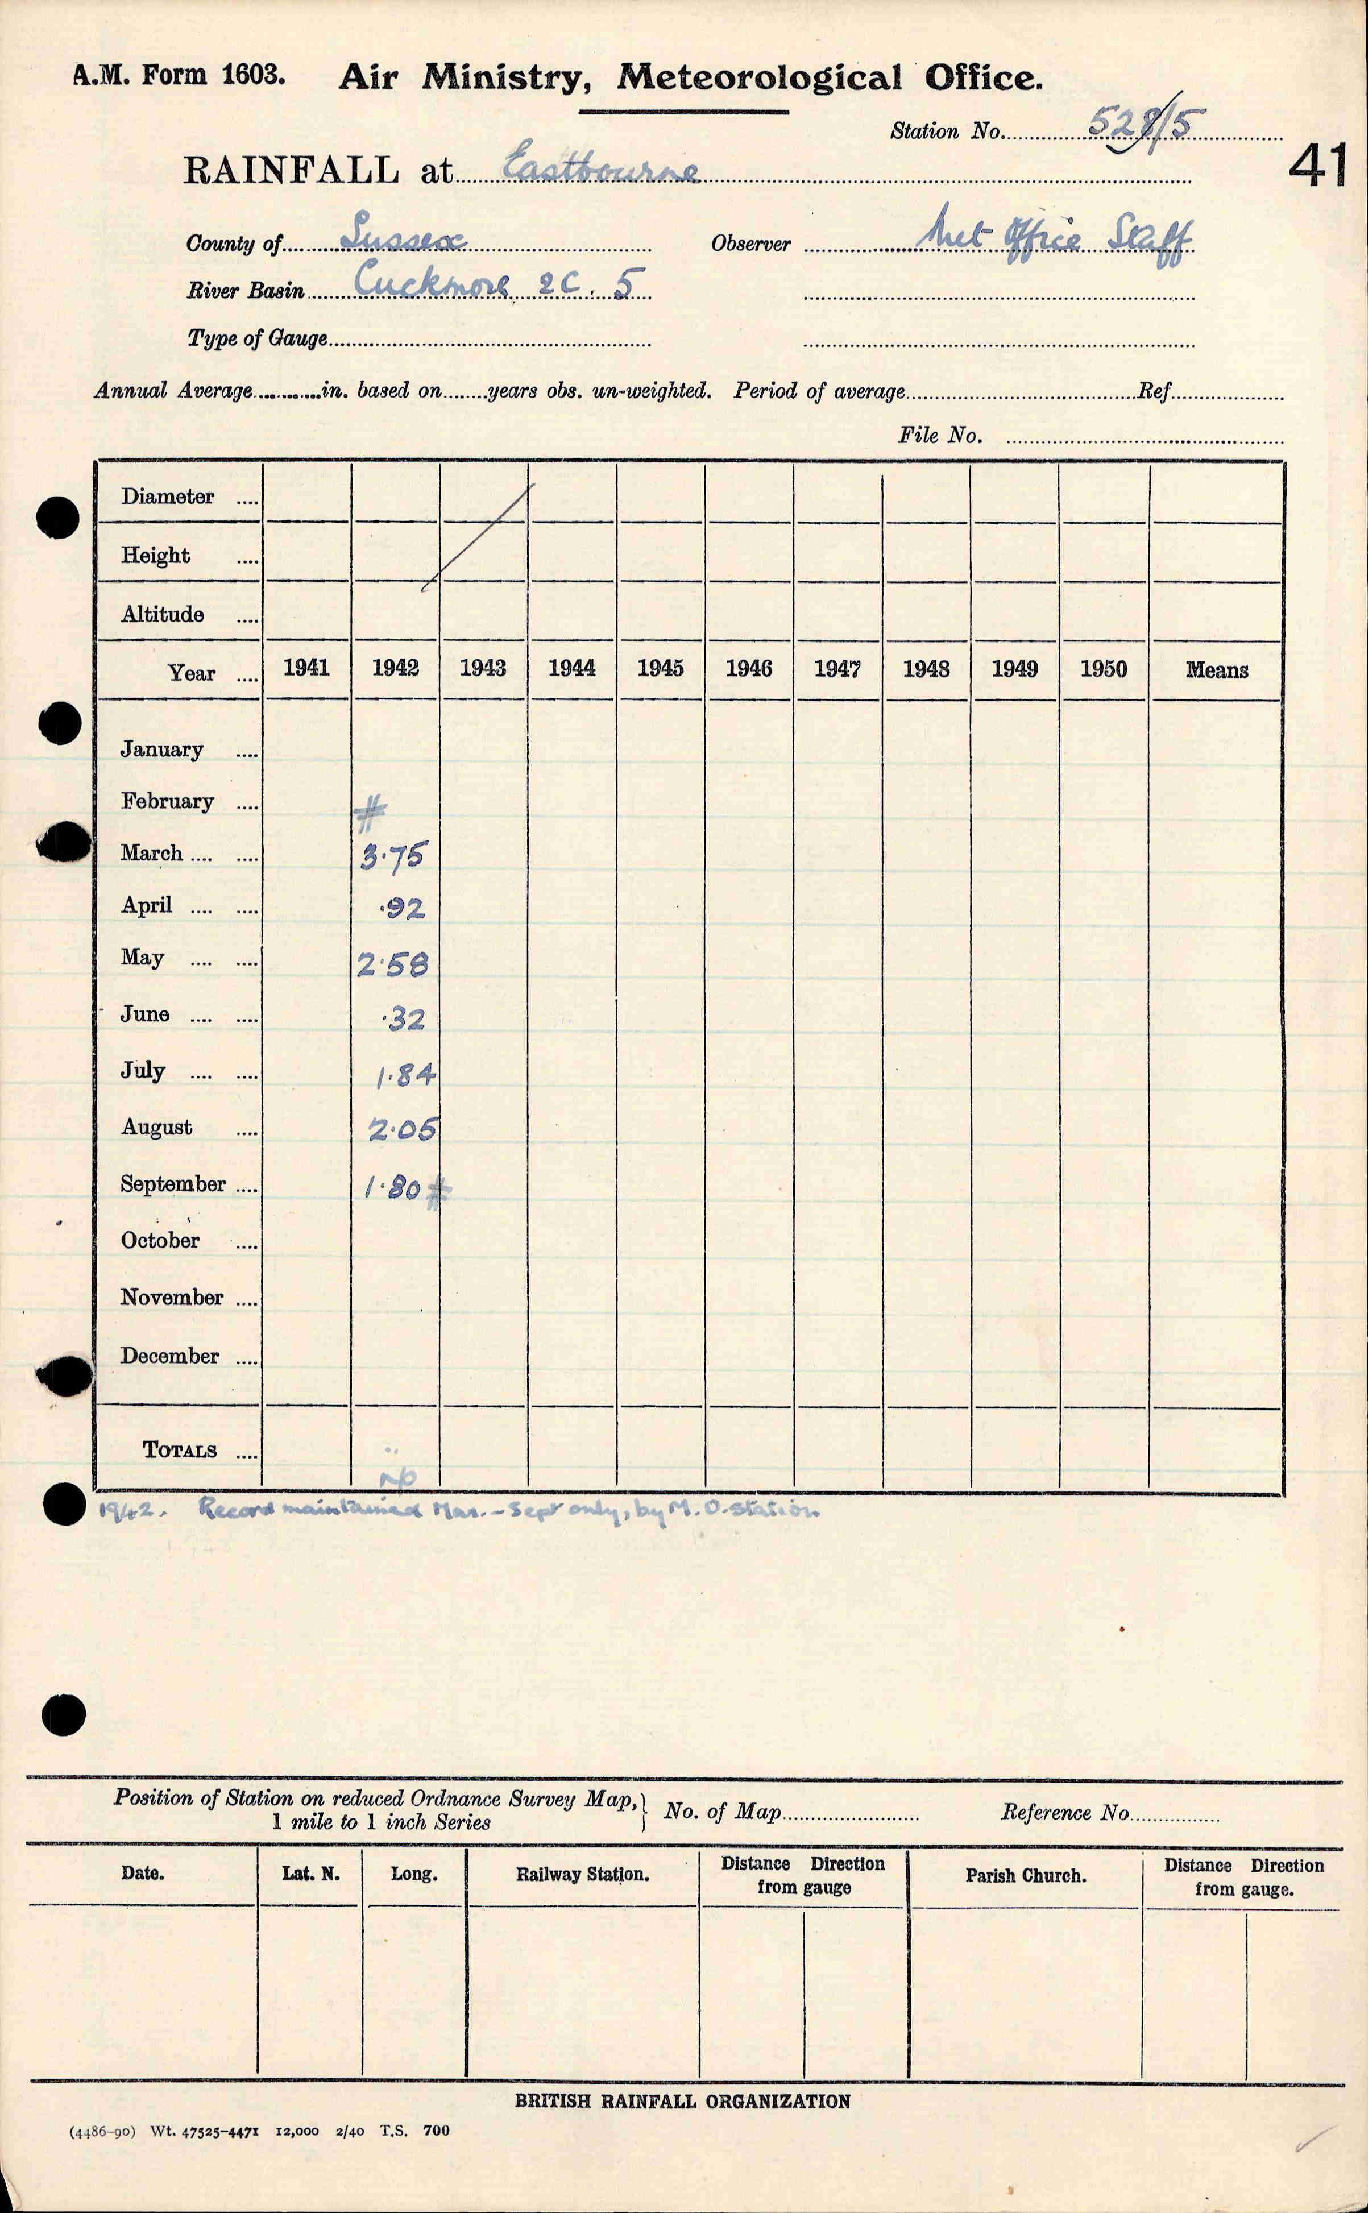 A.M. Form 1603. Air Ministry, Meteorological Office.
Station No. 528/5
41
RAINFALL at Eastbourne
County of Sussex Observer Met Office Staff
River Basin Cuckmore 2C. 5
Type of Gauge
Annual Average in. based on years obs. un-weighted. Period of average Ref
File No.
Diameter
Height
Altitude
Year 1941 1942 1943 1944 1945 1946 1947 1948 1949 1950 Means
January
February #
March 3.75
April .92
May 2.58
June .32
July 1.84
August 2.05
September 1.80 #
October
November
December
TOTALS
1942. Record maintained Mar. - Sept only, by M. O. station
Position of Station on reduced Ordnance Survey Map, No. of Map Reference No.
1 mile to 1 inch Series
Date. Lat. N. Long. Railway Station. Distance Direction from gauge Parish Church. Distance Direction from gauge.
BRITISH RAINFALL ORGANIZATION
(4486-90) Wt. 47525-4471 12,000 2/40 T.S. 700